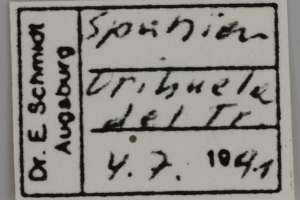 Dr. E. Schmidt
Augsburg
Spanien
Orihuela
del Tr.
4. 7. 1941